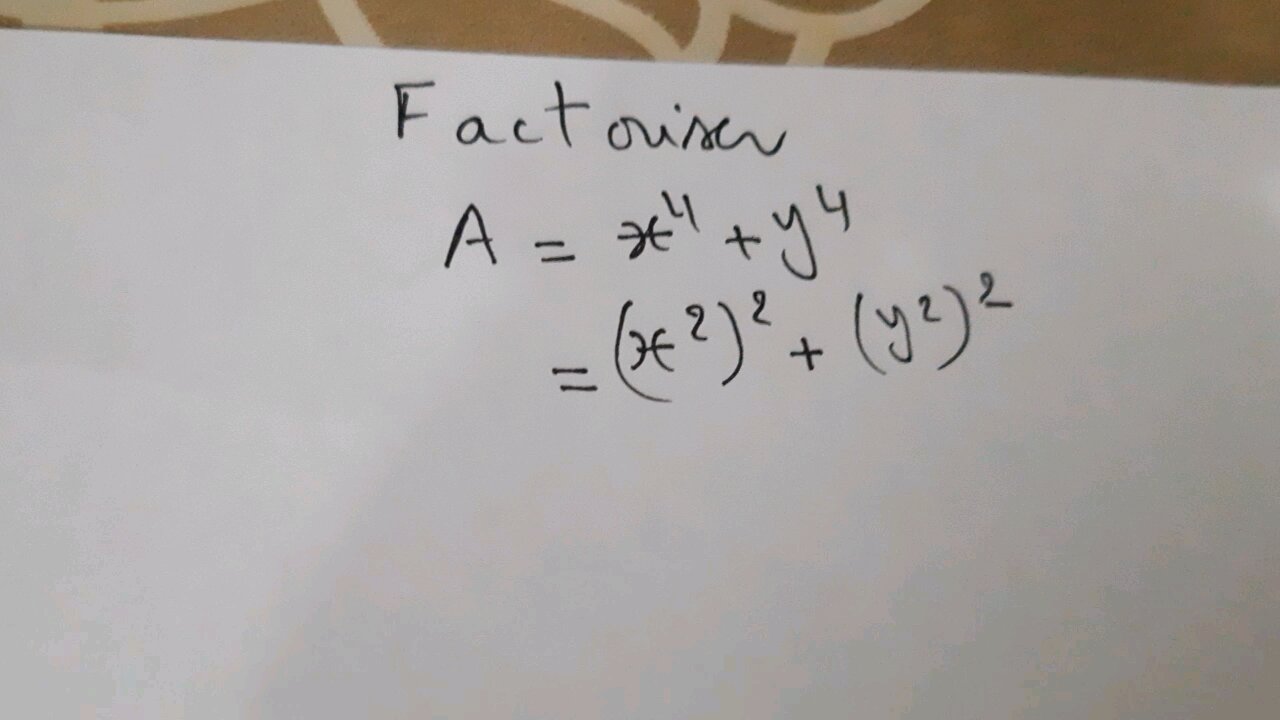 Factoriser
A = x⁴ + y⁴
= (x²)² + (y²)²